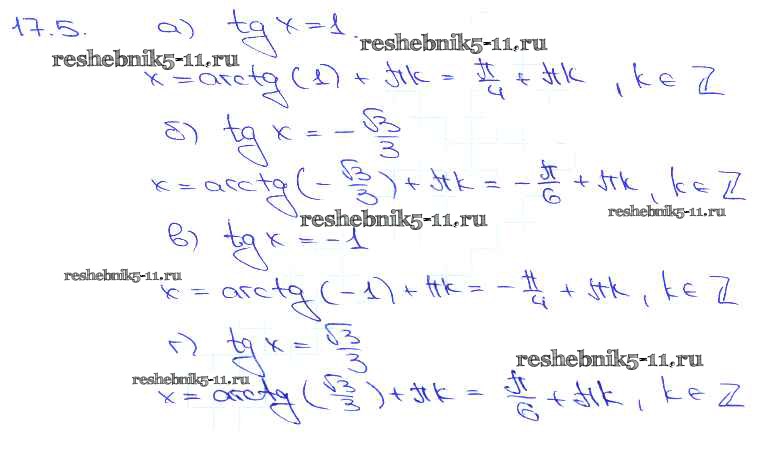 17.5. а) tg x = 1.
reshebnik5-11.ru reshebnik5-11.ru
x = arctg (1) + πk = π/4 + πk , k ∈ ℤ
б) tg x = - √3/3
x = arctg (- √3/3) + πk = - π/6 + πk , k ∈ ℤ
reshebnik5-11.ru reshebnik5-11.ru
в) tg x = -1
reshebnik5-11.ru
x = arctg (-1) + πk = - π/4 + πk , k ∈ ℤ
г) tg x = √3/3
reshebnik5-11.ru reshebnik5-11.ru
x = arctg (√3/3) + πk = π/6 + πk , k ∈ ℤ